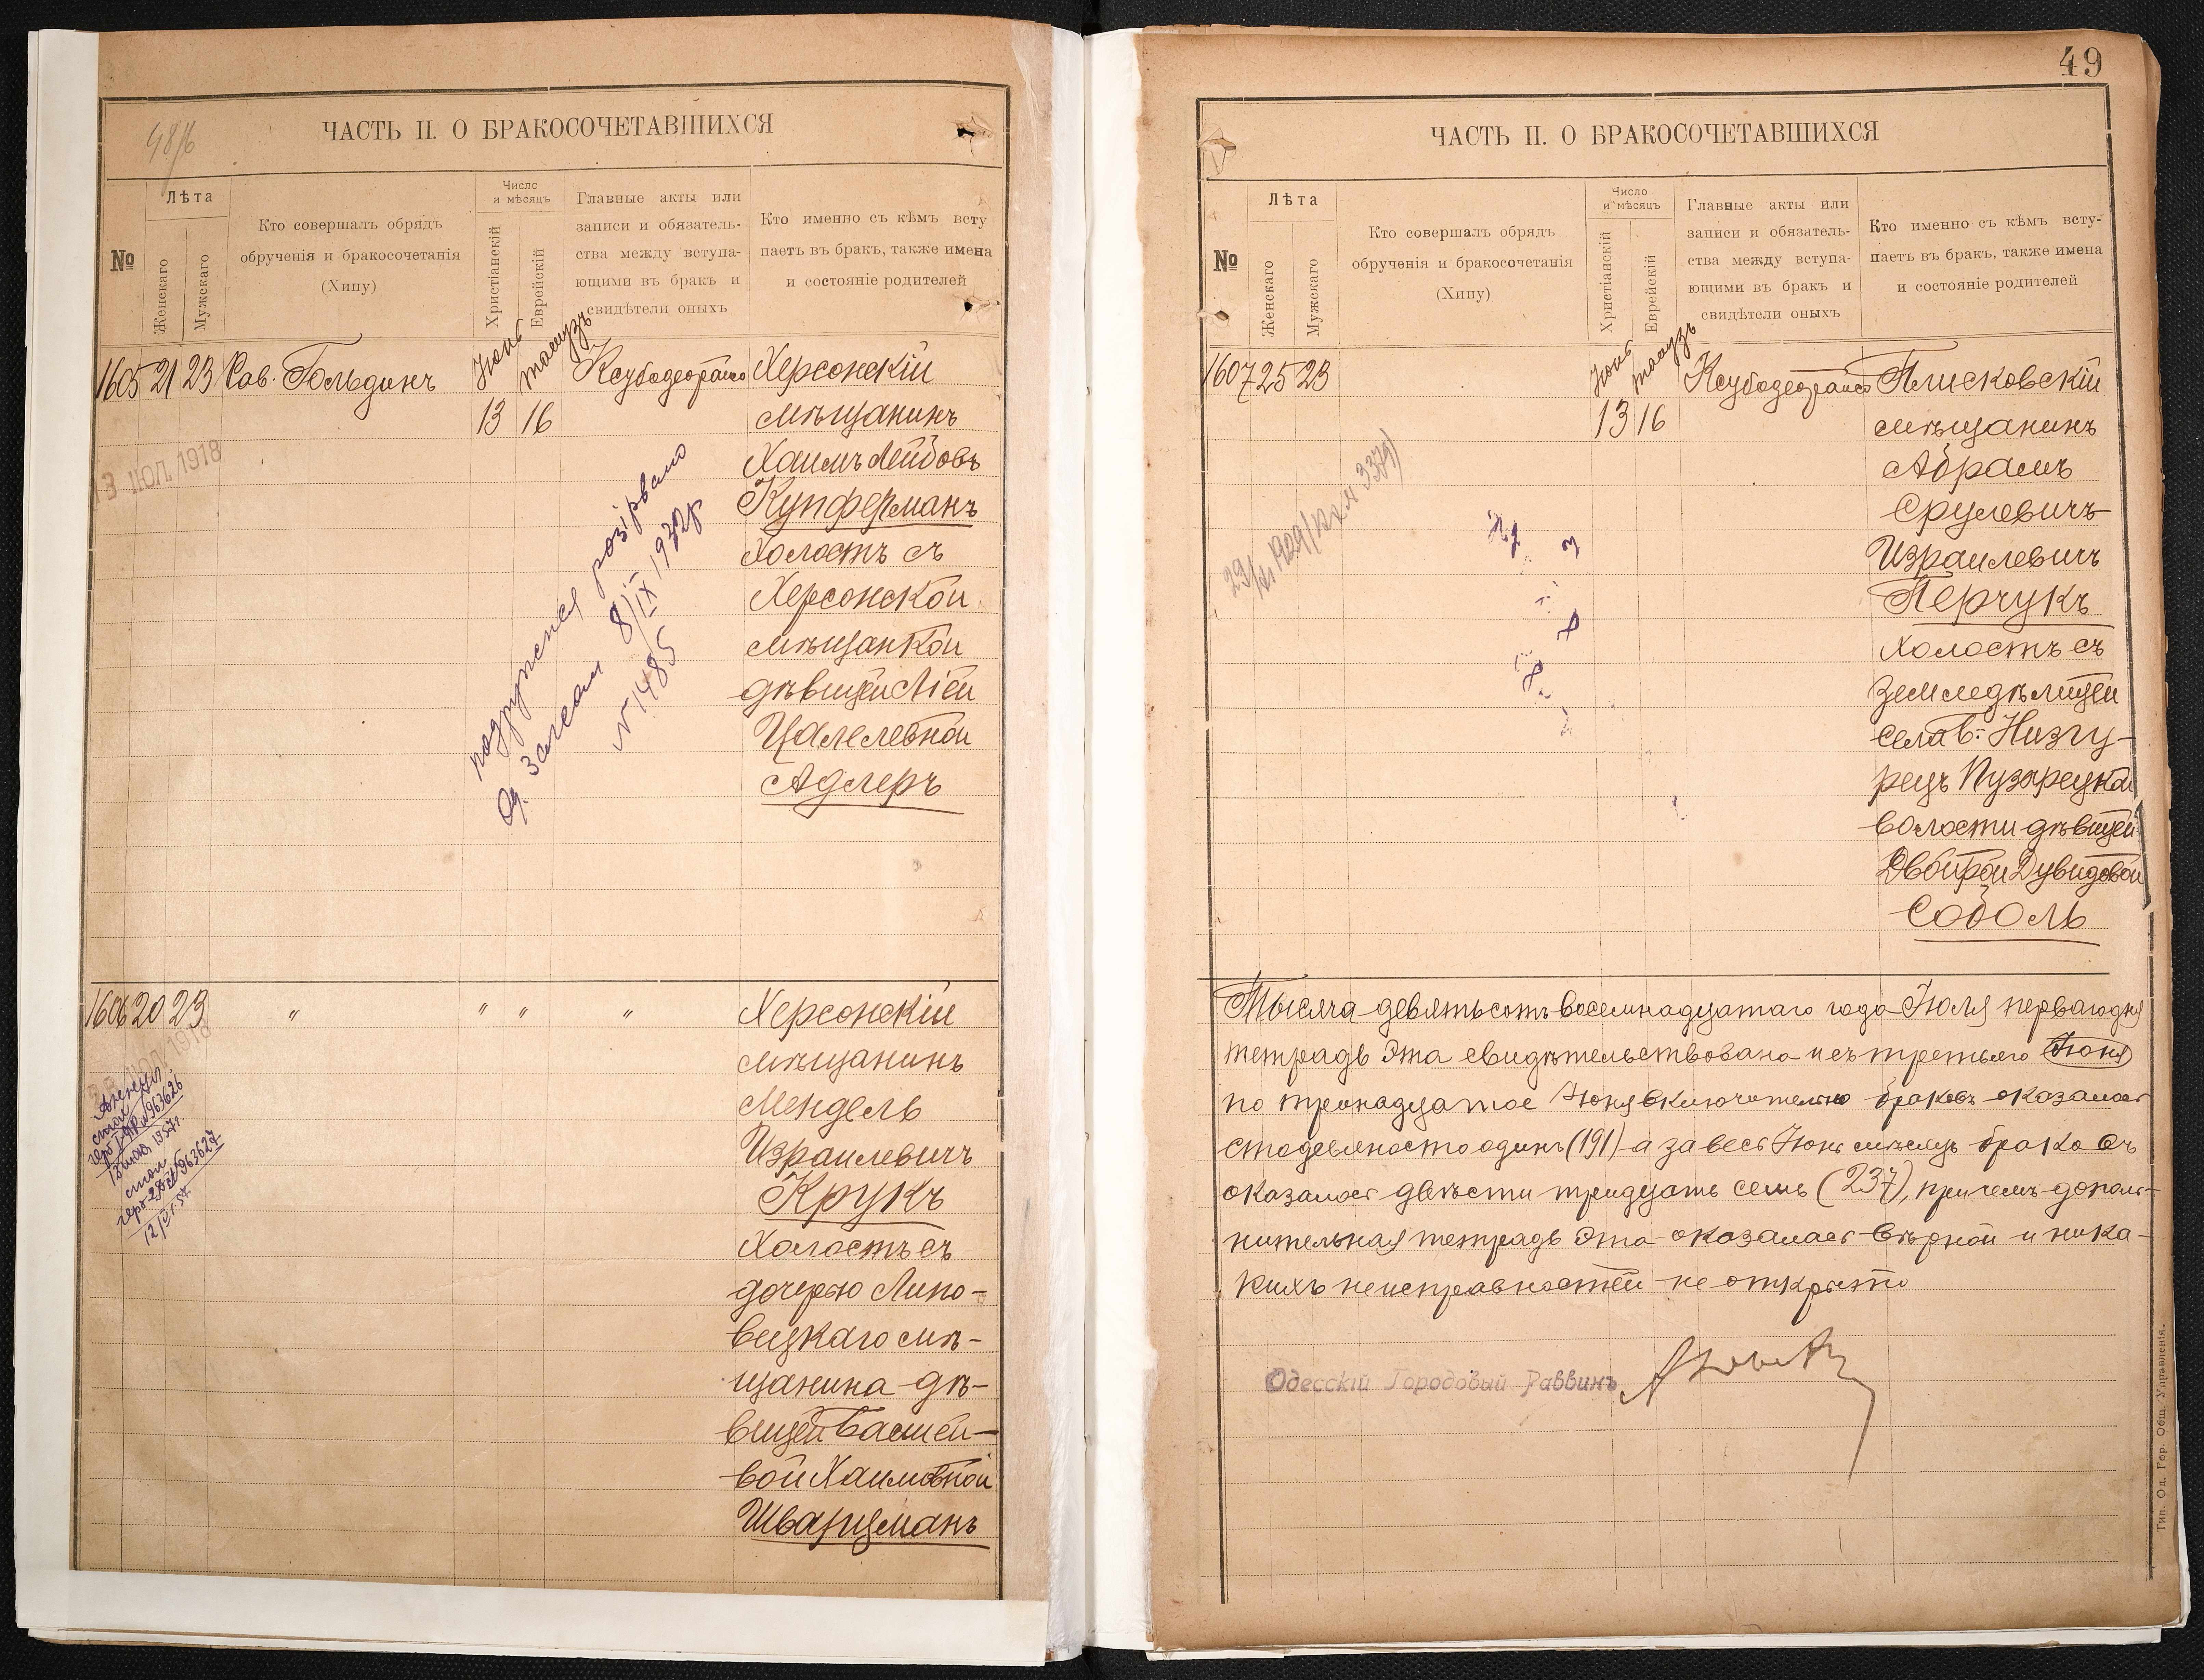 48/б
ЧАСТЬ II. О БРАКОСОЧЕТАВШИХСЯ
№
Лѣта
Женскаго
Мужскаго
Кто совершалъ обрядъ
обрученія и бракосочетанія
(Хипу)
Число
и мѣсяцъ
Христіанскій
Еврейскій
Главные акты или
записи и обязатель-
ства между вступа-
ющими въ бракъ и
свидѣтели оныхъ
Кто именно съ кѣмъ всту
паетъ въ бракъ, также имена
и состояніе родителей
1605 21 23 Рав. Гольдинъ
Іюнь
13
16
Херсонскій
мѣщанинъ
Хаимъ Лейбовъ
Куперманъ
холостъ съ
Херсонской
мѣщанкой
дѣвицей Ліей
Цалелевной
Адлеръ
13 ІЮЛ 1918
подружжя розірвано
Од. Загсом 8/IX 1932р
N 1485
1606 20 23 " " " "
Херсонскій
мѣщанинъ
Мендель
Израилевичъ
Крукъ
Холостъ съ
дочерью Липо-
вецкаго мѣ-
щанина дѣ-
вицей Басшей-
вой Хаимовной
Шварцманъ
963626
963627
49
ЧАСТЬ II. О БРАКОСОЧЕТАВШИХСЯ
№
Лѣта
Женскаго
Мужскаго
Кто совершалъ обрядъ
обрученія и бракосочетанія
(Хипу)
Число
и мѣсяцъ
Христіанскій
Еврейскій
Главные акты или
записи и обязатель-
ства между вступа-
ющими въ бракъ и
свидѣтели оныхъ
Кто именно съ кѣмъ всту-
паетъ въ бракъ, также имена
и состояніе родителей
1607 25 23
Іюнь
13 16
Плисковскій
мѣщанинъ
Абрамъ
Срулевичъ
Израилевичъ
Перчукъ
холостъ съ
земледѣлицей
села В: Низгу-
рецъ Пузырецкой
волости дѣвицей
Двойрой Дувидовой
Соболь
Тысяча девятьсотъ восемнадцатаго года Іюля перваго дня
тетрадь эта свидѣтельствована и съ третьяго Іюня
по тринадцатое Іюня включительно браковъ оказалось
сто девяносто одинъ (191) а за весь Іюнь мѣсяцъ брако въ
оказалось двѣсти тридцать семь (237), причемъ допол-
нительная тетрадь эта оказалась вѣрной и ника-
кихъ неисправностей не открыто
Одесскій Городовый Раввинъ
Тип. Од. Гор. Общ. Управленія.